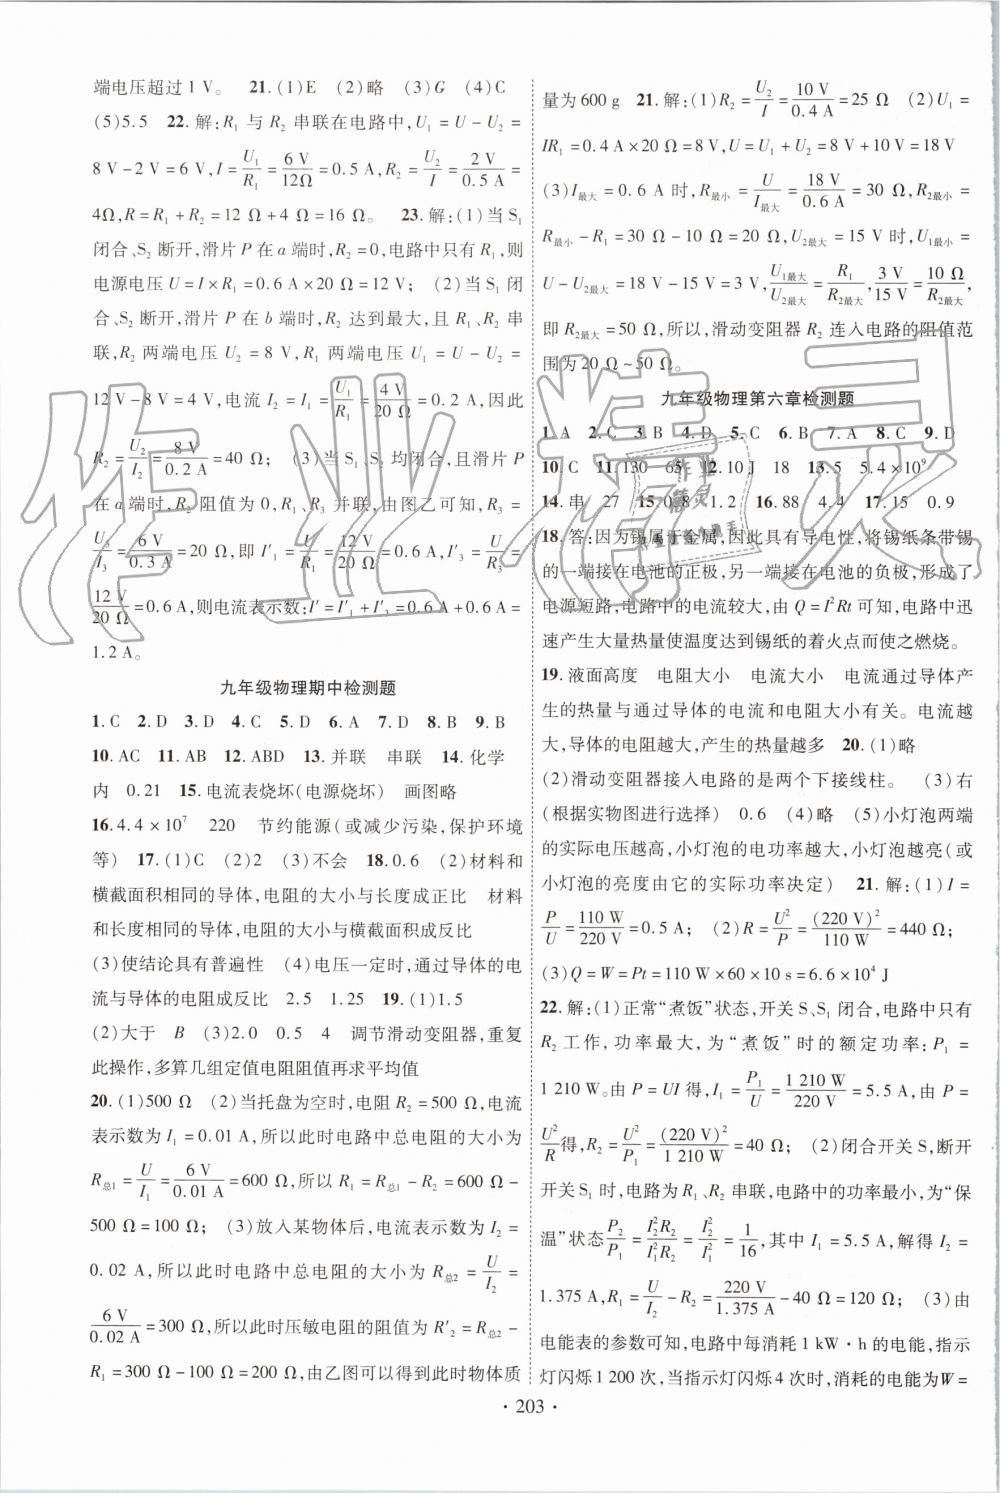 端电压超过 1 V。 21. (1)E (2)略 (3)G (4)C
(5)5.5 22. 解:R₁ 与 R₂ 串联在电路中,U₁ = U - U₂ =
8 V - 2 V = 6 V,I = U₁/R₁ = 6 V/12Ω = 0.5 A,R₂ = U₂/I = 2 V/0.5 A =
4Ω,R = R₁ + R₂ = 12 Ω + 4 Ω = 16 Ω。 23. 解:(1)当 S₁
闭合、S₂ 断开,滑片 P 在 a 端时,R₂ = 0,电路中只有 R₁,则
电源电压 U = I × R₁ = 0.6 A × 20 Ω = 12 V; (2)当 S₁ 闭
合、S₂ 断开,滑片 P 在 b 端时,R₂ 达到最大,且 R₁、R₂ 串
联,R₂ 两端电压 U₂ = 8 V,R₁ 两端电压 U₁ = U - U₂ =
12 V - 8 V = 4 V,电流 I₂ = I₁ = U₁/R₁ = 4 V/20 Ω = 0.2 A,因此
R₂ = U₂/I₂ = 8 V/0.2 A = 40 Ω; (3)当 S₁、S₂ 均闭合,且滑片 P
在 a 端时,R₂ 阻值为 0,R₁、R₃ 并联,由图乙可知,R₃ =
U₃/I₃ = 6 V/0.3 A = 20 Ω,即 I′₁ = U/R₁ = 12 V/20 Ω = 0.6 A,I′₃ = U/R₃ =
12 V/20 Ω = 0.6 A,则电流表示数:I′ = I′₁ + I′₃ = 0.6 A + 0.6 A =
1.2 A。
九年级物理期中检测题
1. C 2. D 3. D 4. C 5. D 6. A 7. D 8. B 9. B
10. AC 11. AB 12. ABD 13. 并联 串联 14. 化学
内 0.21 15. 电流表烧坏(电源烧坏) 画图略
16. 4.4 × 10⁷ 220 节约能源(或减少污染,保护环境
等) 17. (1)C (2)2 (3)不会 18. 0.6 (2)材料和
横截面积相同的导体,电阻的大小与长度成正比 材料
和长度相同的导体,电阻的大小与横截面积成反比
(3)使结论具有普遍性 (4)电压一定时,通过导体的电
流与导体的电阻成反比 2.5 1.25 19. (1)1.5
(2)大于 B (3)2.0 0.5 4 调节滑动变阻器,重复
此操作,多算几组定值电阻阻值再求平均值
20. (1)500 Ω (2)当托盘为空时,电阻 R₂ = 500 Ω,电流
表示数为 I₁ = 0.01 A,所以此时电路中总电阻的大小为
R总1 = U/I₁ = 6 V/0.01 A = 600 Ω,所以 R₁ = R总1 - R₂ = 600 Ω -
500 Ω = 100 Ω; (3)放入某物体后,电流表示数为 I₂ =
0.02 A,所以此时电路中总电阻的大小为 R总2 = U/I₂ =
6 V/0.02 A = 300 Ω,所以此时压敏电阻的阻值为 R′₂ = R总2 -
R₁ = 300 Ω - 100 Ω = 200 Ω; 由乙图可以得到此时物体质
量为 600 g 21. 解:(1)R₂ = U₂/I = 10 V/0.4 A = 25 Ω (2)U₁ =
IR₁ = 0.4 A × 20 Ω = 8 V,U = U₁ + U₂ = 8 V + 10 V = 18 V
(3)I最大 = 0.6 A 时,R最小 = U/I最大 = 18 V/0.6 A = 30 Ω,R2最小 =
R最小 - R₁ = 30 Ω - 10 Ω = 20 Ω,U2最大 = 15 V 时,U1最小 =
U - U2最大 = 18 V - 15 V = 3 V,U1最大/U2最大 = R₁/R2最大,3 V/15 V = 10 Ω/R2最大,
即 R2最大 = 50 Ω,所以,滑动变阻器 R₂ 连入电路的阻值范
围为 20 Ω ~ 50 Ω。
九年级物理第六章检测题
1. A 2. C 3. B 4. D 5. C 6. B 7. A 8. C 9. D
10. C 11. 130 65 12. 10 J 18 13. 5 5.4 × 10⁹
14. 串 27 15. 0.8 1.2 16. 88 4.4 17. 15 0.9
18. 答:因为锡属于金属,因此具有导电性,将锡纸条带锡
的一端接在电池的正极,另一端接在电池的负极,形成了
电源短路,电路中的电流较大,由 Q = I²Rt 可知,电路中迅
速产生大量热量使温度达到锡纸的着火点而使之燃烧。
19. 液面高度 电阻大小 电流大小 电流通过导体产
生的热量与通过导体的电流和电阻大小有关。电流越
大,导体的电阻越大,产生的热量越多 20. (1)略
(2)滑动变阻器接入电路的是两个下接线柱。 (3)右
(根据实物图进行选择) 0.6 (4)略 (5)小灯泡两端
的实际电压越高,小灯泡的电功率越大,小灯泡越亮(或
小灯泡的亮度由它的实际功率决定) 21. 解:(1)I =
P/U = 110 W/220 V = 0.5 A; (2)R = U²/P = (220 V)²/110 W = 440 Ω;
(3)Q = W = Pt = 110 W × 60 × 10 s = 6.6 × 10⁴ J
22. 解:(1)正常“煮饭”状态,开关 S、S₁ 闭合,电路中只有
R₂ 工作,功率最大,为“煮饭”时的额定功率:P₁ =
1 210 W。由 P = UI 得,I₁ = P₁/U = 1 210 W/220 V = 5.5 A,由 P =
U²/R 得,R₂ = U²/P₁ = (220 V)²/1 210 W = 40 Ω; (2)闭合开关 S,断开
开关 S₁ 时,电路为 R₁、R₂ 串联,电路中的功率最小,为“保
温”状态 P₂/P₁ = I₂²R₂/I₁²R₂ = I₂²/I₁² = 1/16,其中 I₁ = 5.5 A,解得 I₂ =
1.375 A,R₁ = U/I₂ - R₂ = 220 V/1.375 A - 40 Ω = 120 Ω; (3)由
电能表的参数可知,电路中每消耗 1 kW·h 的电能,指示
灯闪烁 1 200 次,当指示灯闪烁 4 次时,消耗的电能为 W =
· 203 ·
作业精灵